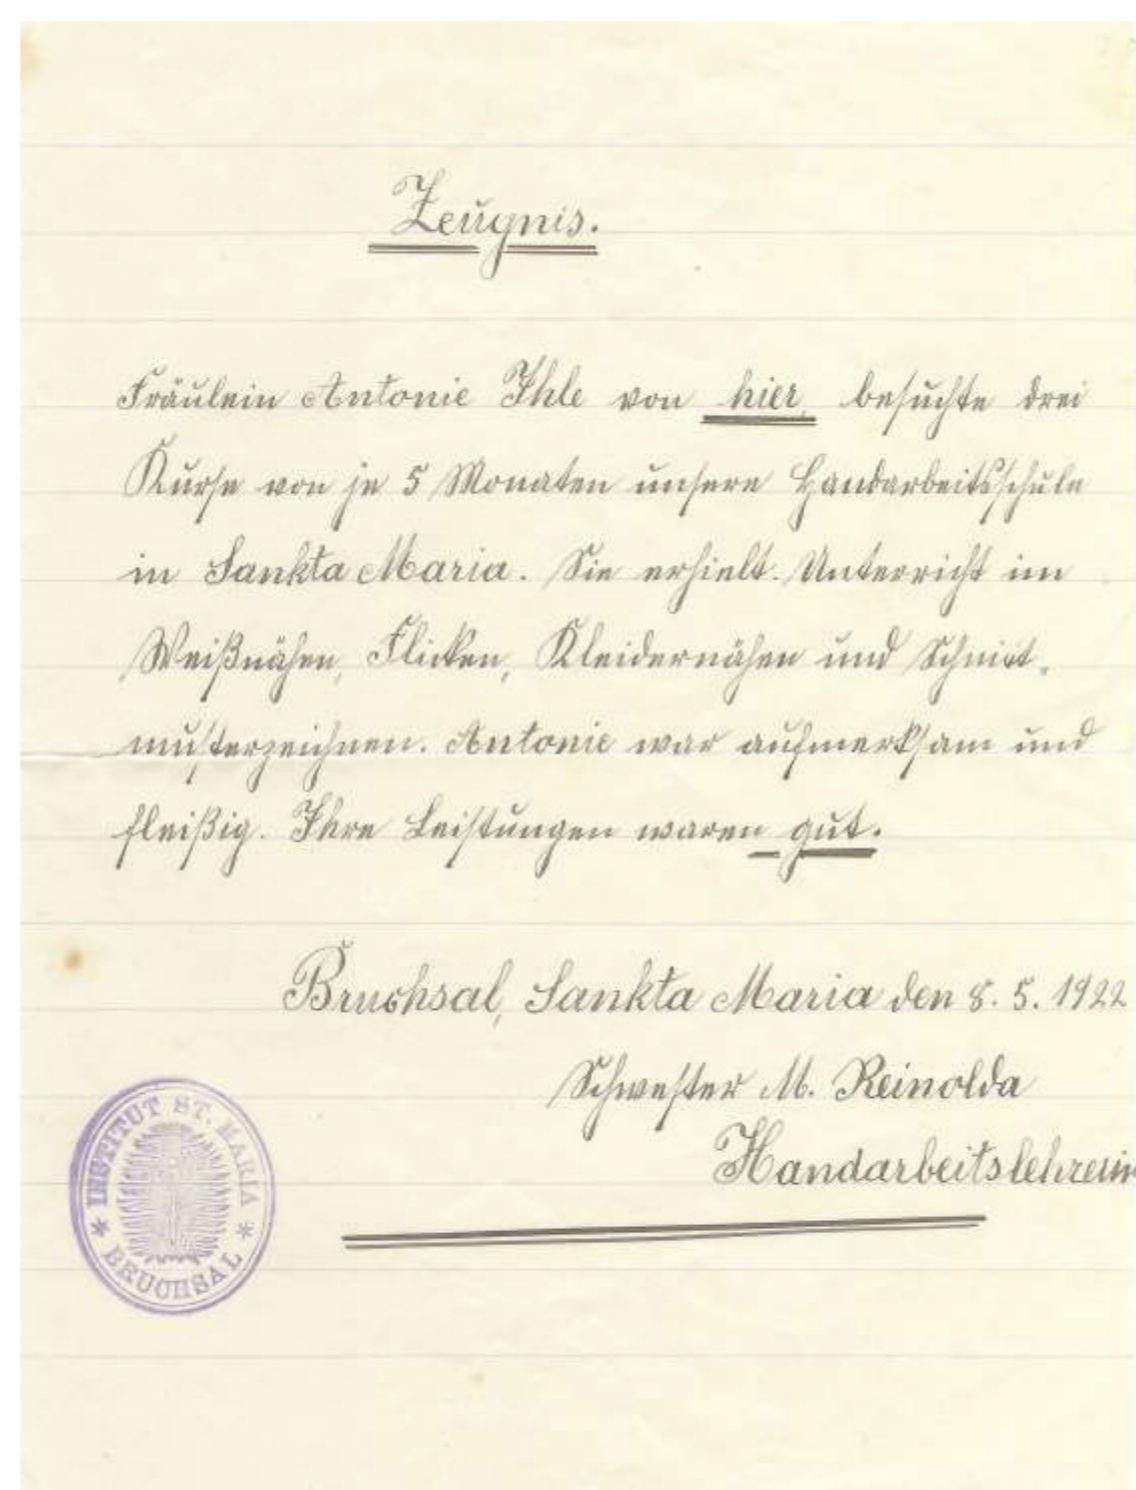 Zeugnis.
Fräulein Antonie Ihle von hier besuchte drei
Kurse von je 5 Monaten unsere Handarbeitsschule
in Sankta Maria. Sie erhielt Unterricht im
Weißnähen, Flicken, Kleidernähen und Schnitt-
musterzeichnen. Antonie war aufmerksam und
fleißig. Ihre Leistungen waren gut.
Bruchsal, Sankta Maria den 8. 5. 1922
Schwester M. Reinolda
Handarbeitslehrerin
INSTITUT ST. MARIA
* BRUCHSAL *